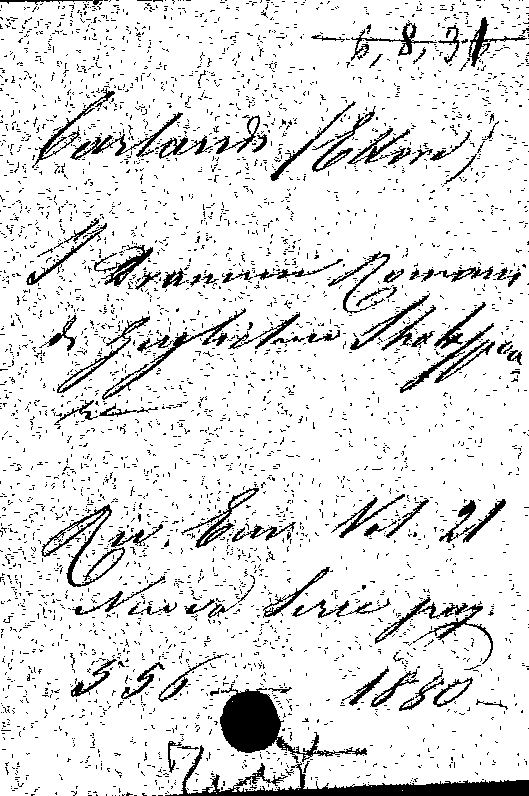 6, 8, 3,
Carlandi (Ettore)
I Drammi Romani
di Guglielmo Shakspea
re
Riv. Eur. Vol. 21
Nuova Serie pag.
556 — 1880 —